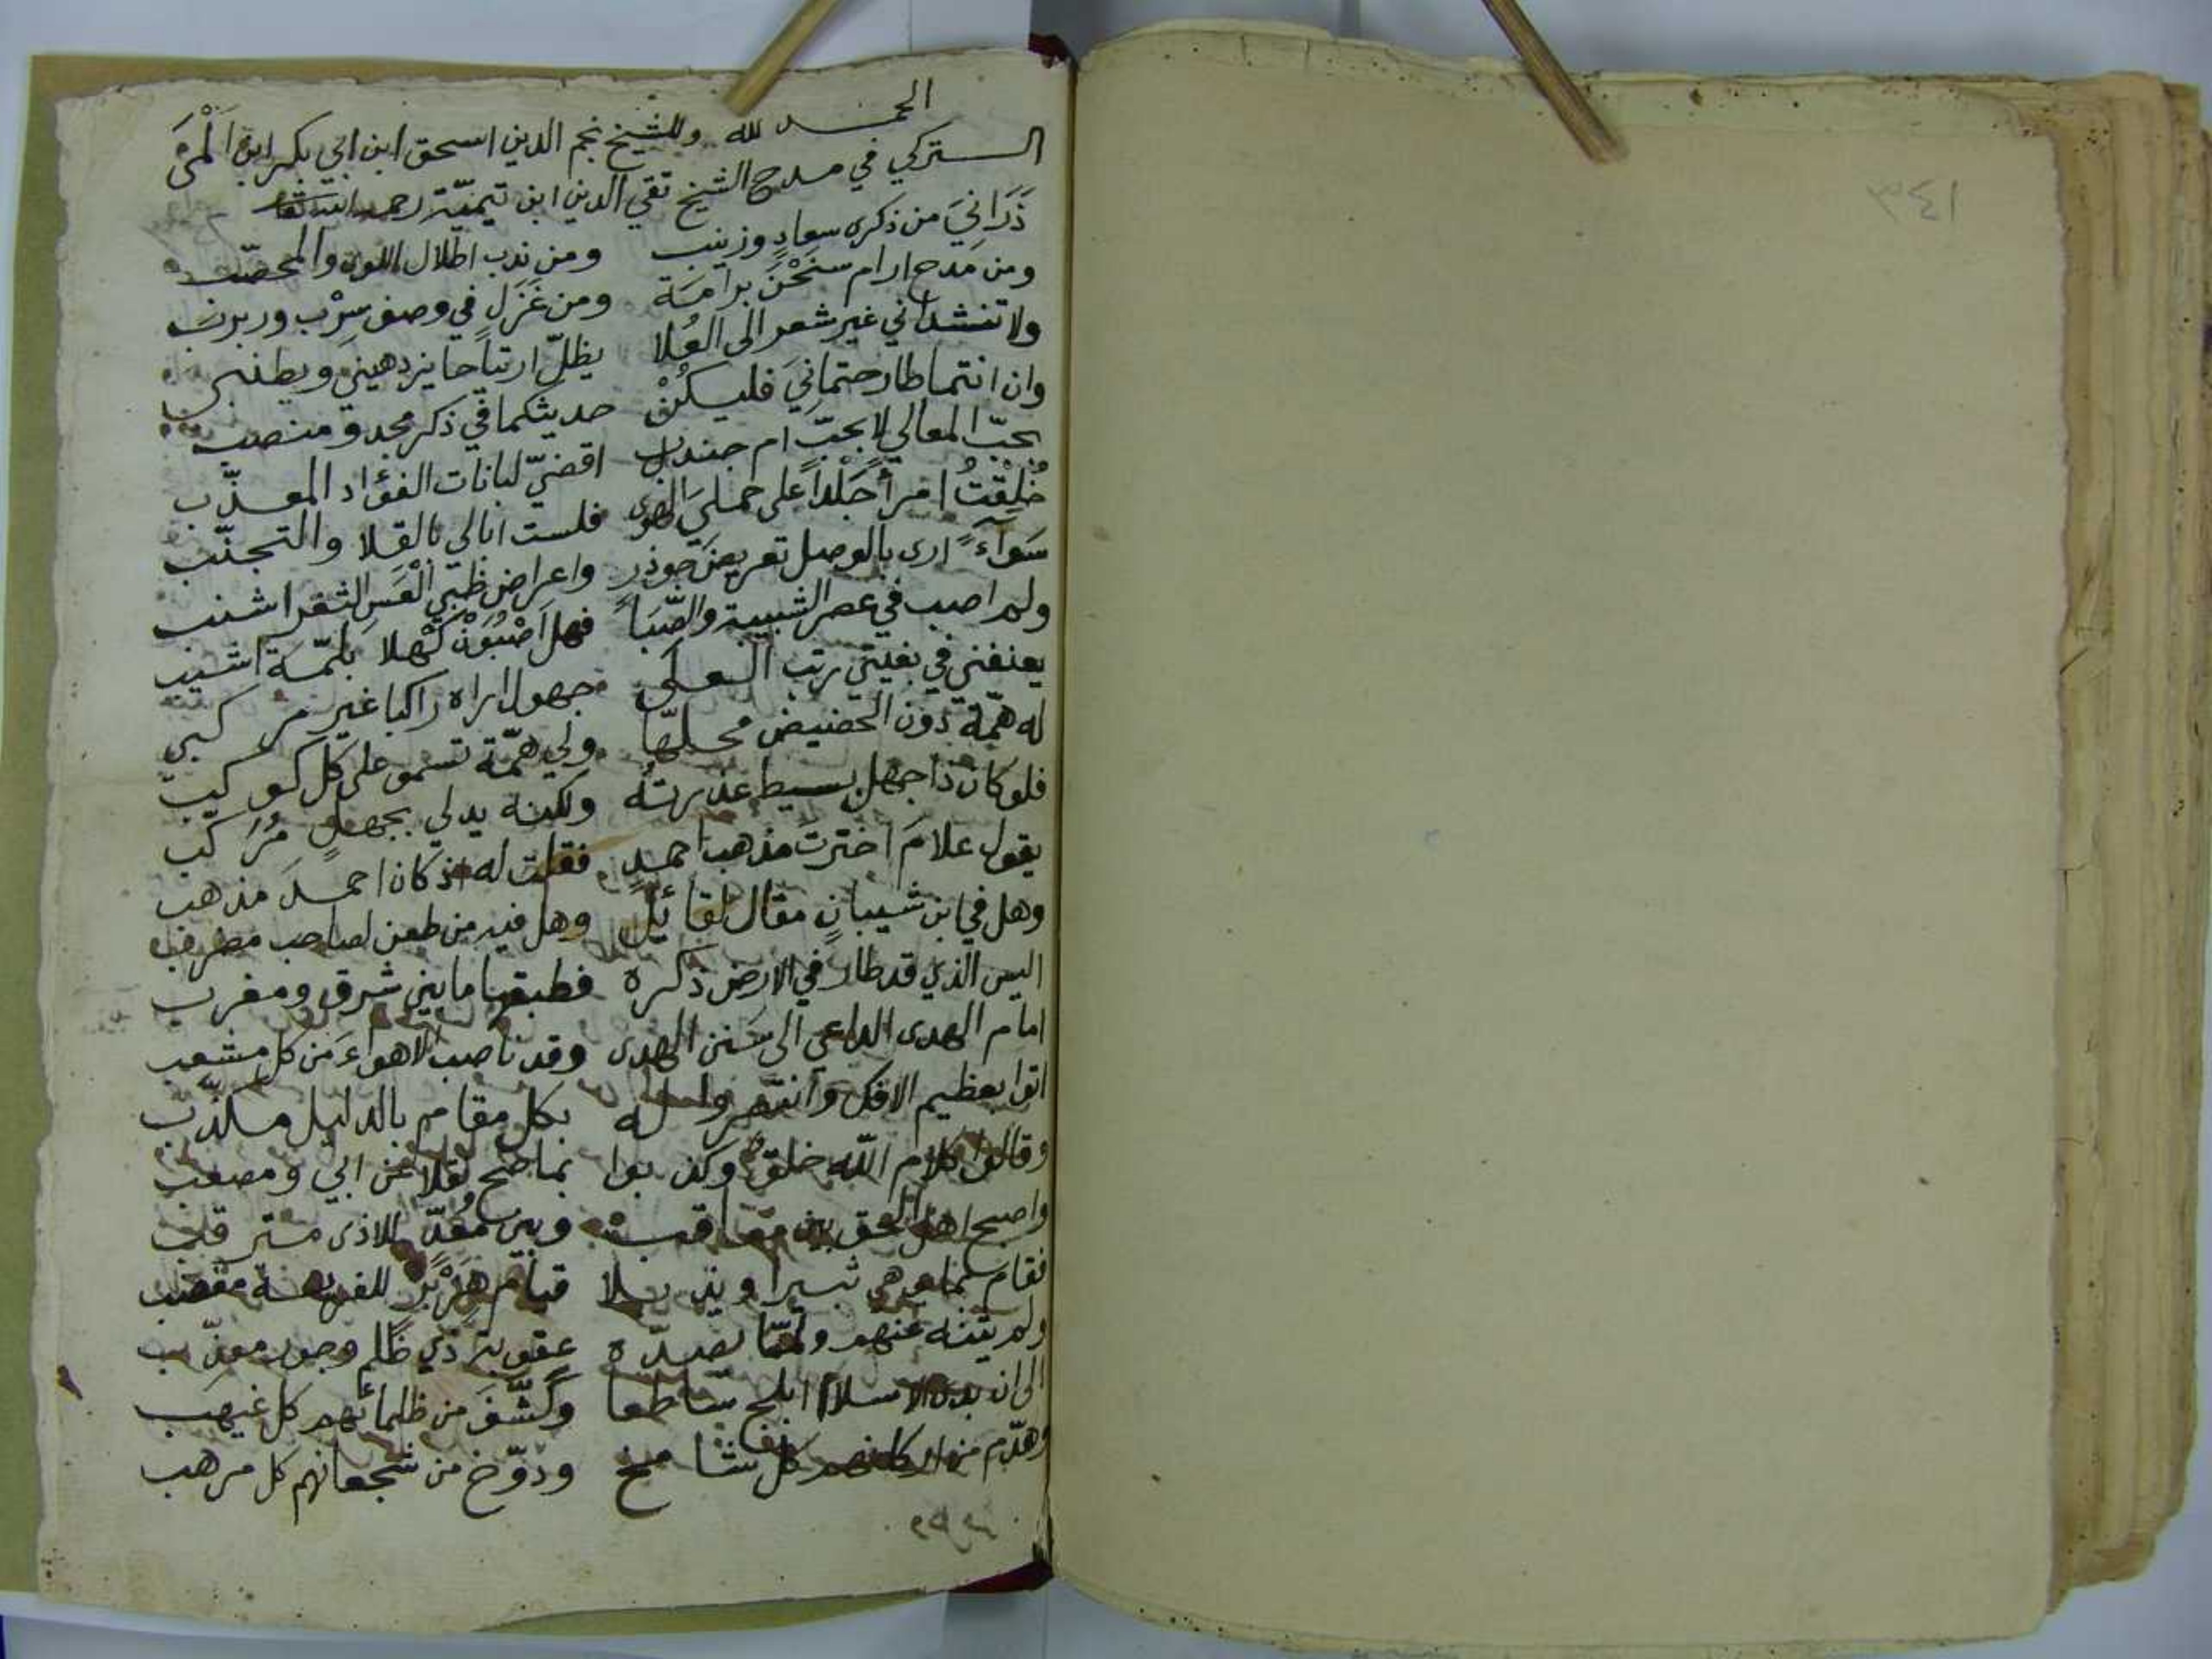 الحمد لله وللشيخ نجم الدين اسحق ابن ابي بكر ابن المنى
التركي في مدح الشيخ تقي الدين ابن تيميّة رحمه الله تعا
ذَرَانِيَ من ذكرى سعادٍ وزينب ومن ندب اطلال اللوى والمحصّب
ومن مدح ارام سنَحْنَ برامَة ومن غَزَلٍ في وصف سِرْب وربرب
ولا تنشداني غير شعر الى العُلا يظلّ ارتياحا يزدهيني ويطنبي
وان انتما طارحتمانيَ فليكُنْ حديثكما في ذكر مجد ومنصب
بحبّ المعالي لا بحبّ ام جندب اقضيّ لبانات الفؤاد المعذّب
خُلِقْتُ امرأً جَلْداً على حمليَ الهوى فلست ابالي بالقلا والتجنّب
سَوَآءً ارى بالوصل تعريضَ جوذر واعراض ظبي الْعَسِ الثغر اشنب
ولم اصب في عصر الشبيبة والصِّبَا فهل اَصْبُوَنْ كَهْلا بلمّة اشيب
يعنفني في بغيتي رتب العلى جهول اراه راكبا غير مركبي
له همّة دون الحضيض محلّها ولي همّة تسمو على كل كوكب
فلو كان ذا جهل بسيط عذرته ولكنه يدلي بجهلٍ مُرَكب
يقول علامَ اخترت مذهب احمدٍ فقلت له اذ كان احمدَ مذهب
وهل في ابن شيبانٍ مقال لقائلٍ وهل فيه من طعن لصاحب مضرب
اليس الذي قد طار في الارض ذكره فطبقها ما بين شرق ومغرب
امام الهدى الداعي الى سَنن الهدى وقد ناصب الاهواءَ من كل مشعب
اتوا بعظيم الافك وانتصروا له بكل مقام بالدليل مكذّب
وقالوا كلام الله خلقٌ وكذبوا بما صح نقلا عن ابي ومصعب
واصبح اهل الحق بين معاقب وبين مُعَدّ للاذى مترقب
فقام بما يوهي ثبيرا ويذبلا قيام هِزَبْرٍ للفريسة مغضب
ولم يثنه عنهم ولمّا يصدّه عقوبة ذي ظلم وجور معذّب
الى ان بدا الاسلام ابلج ساطعا وكُشّفَ من ظلمائهم كل غيهب
وهدّم من اركانهم كل شامخ ودوّخ من شجعانهم كل مرهب
١٤٣